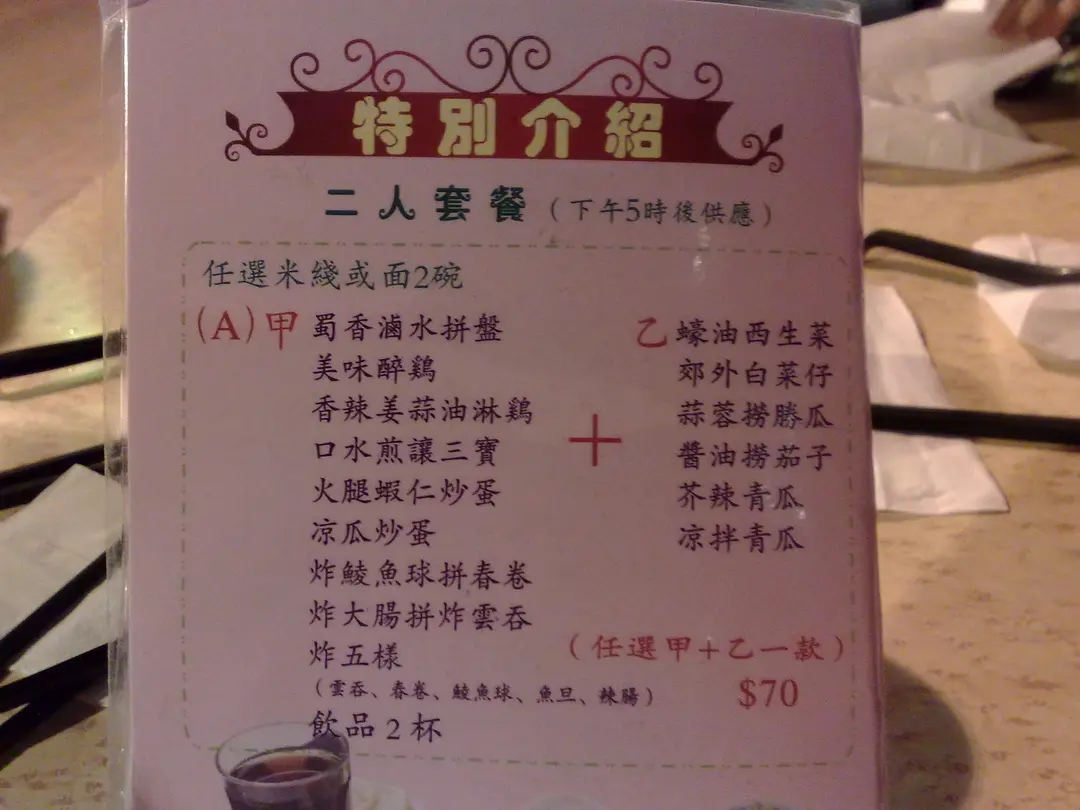 特別介紹
二人套餐（下午5時後供應）
任選米綫或面2碗
(A)甲 蜀香滷水拼盤
美味醉鷄
香辣姜蒜油淋鷄
口水煎讓三寶
火腿蝦仁炒蛋
凉瓜炒蛋
炸鯪魚球拼春卷
炸大腸拼炸雲吞
炸五樣
（雲吞、春卷、鯪魚球、魚旦、辣腸）
飲品2杯
+
乙 蠔油西生菜
郊外白菜仔
蒜蓉撈勝瓜
醬油撈茄子
芥辣青瓜
凉拌青瓜
（任選甲+乙一款）
$70